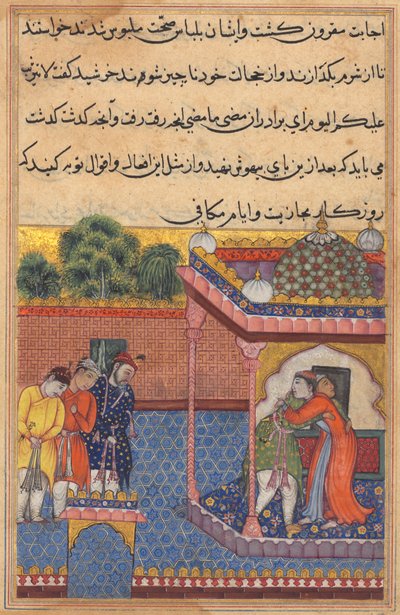 اجابت مقرون گشت و ایشان بلباس صحّت ملبوس شدند خواستند
تا از شرم بگدازند و از خجالت خود ناچیز شوند خرشید گفت لا تثریب
علیکم الیوم رای برادران مضی ما مضی انچه رفت رفت و آنچه گذشت گذشت
می باید که بعد ازین پای بهوش نهید و از مثل این افعال و اقوال توبه کنید که
روزگار مجازیست و ایام مکافی